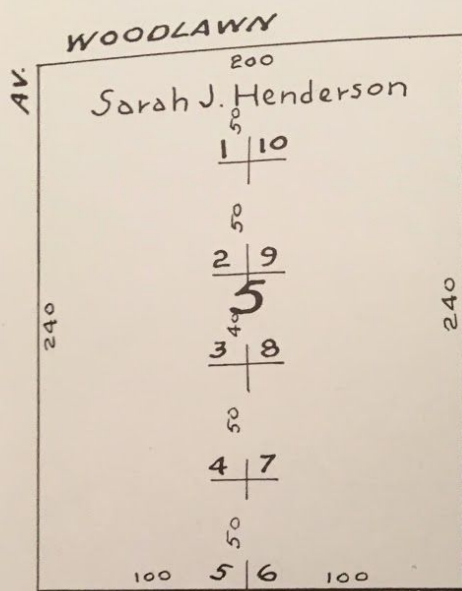 WOODLAWN
AV.
200
Sarah J. Henderson
50
1 10
50
2 9
5
240 40 240
3 8
50
4 7
50
100 5 6 100